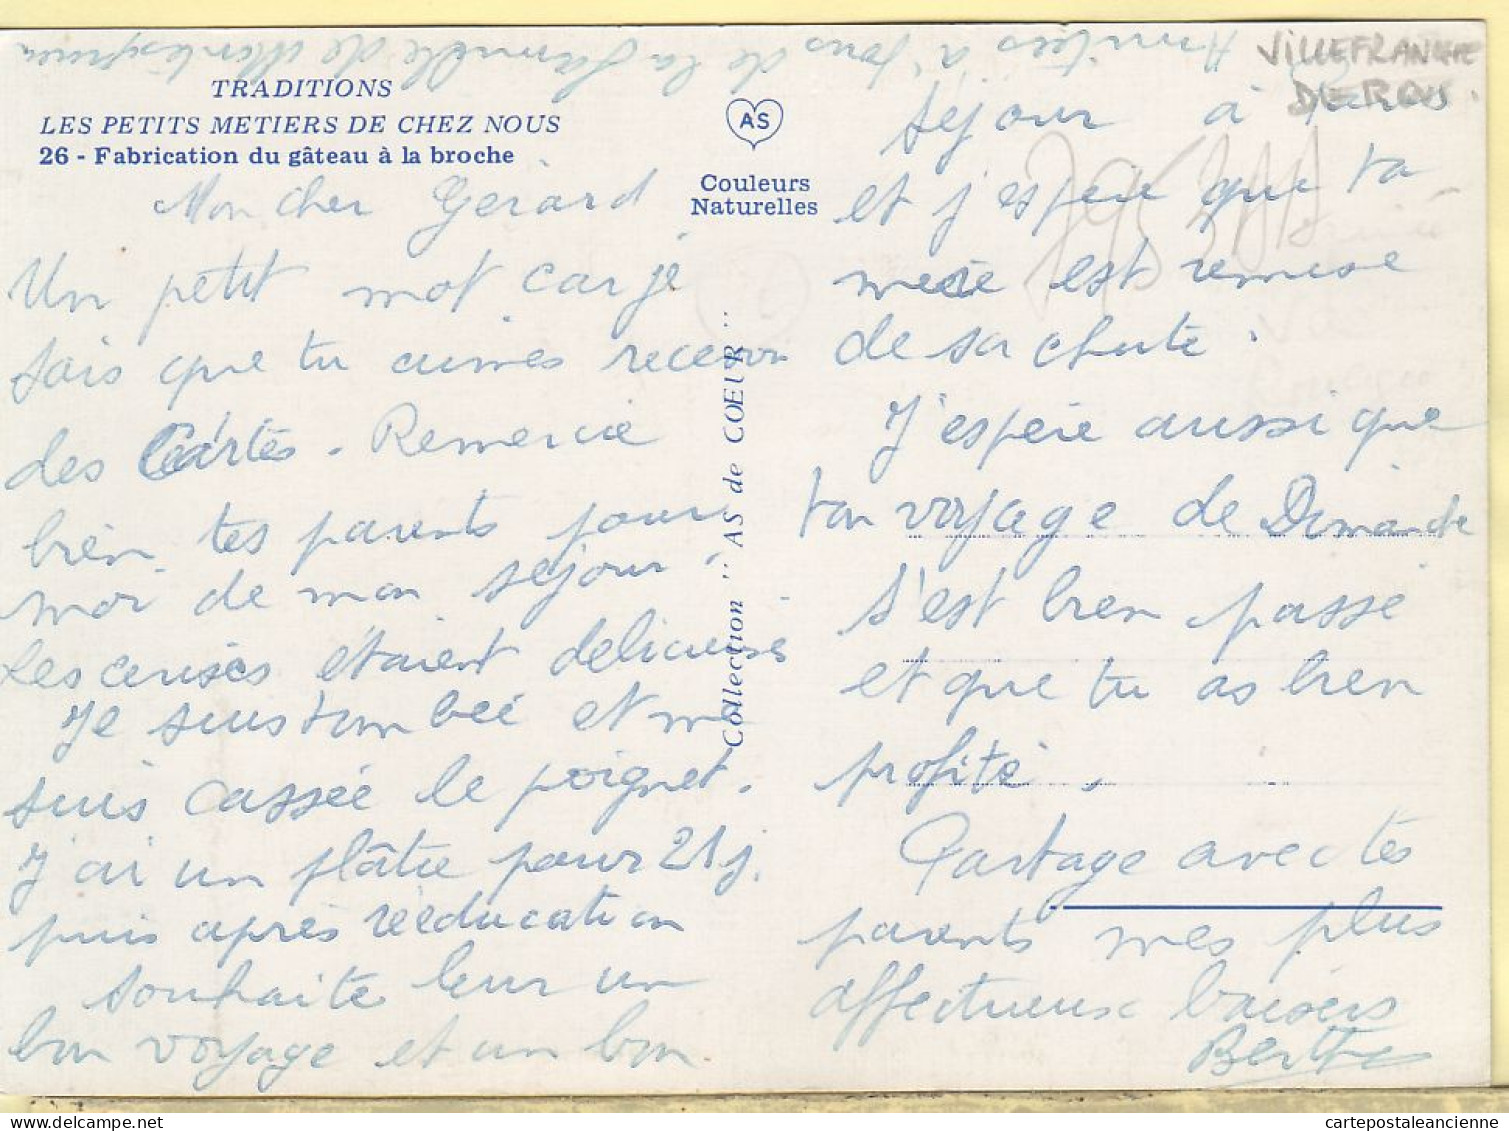 Amitiés à tous de la famille de
TRADITIONS
LES PETITS METIERS DE CHEZ NOUS
26 - Fabrication du gâteau à la broche
AS
Couleurs
Naturelles
Collection :: AS de COEUR ::
Mon cher Gérard
Un petit mot car je
sais que tu aimes recevoir
des Cartes. Remercie
bien tes parents pour
moi de mon séjour.
Les cerises étaient delicieuses
Je suis tombée et me
suis cassée le poignet.
J'ai un plâtre pour 21 j.
puis après rééducation
souhaite leur un
bon voyage et un bon
VILLEFRANCHE
DE ROU
séjour à
et j'espère que ta
mère est remise
de sa chute.
J'espère aussi que
ton voyage de Dimanche
s'est bien passé
et que tu as bien
profité.
Partage avec tes
parents mes plus
affectueux baisers
Berthe
cartepostaleancienne